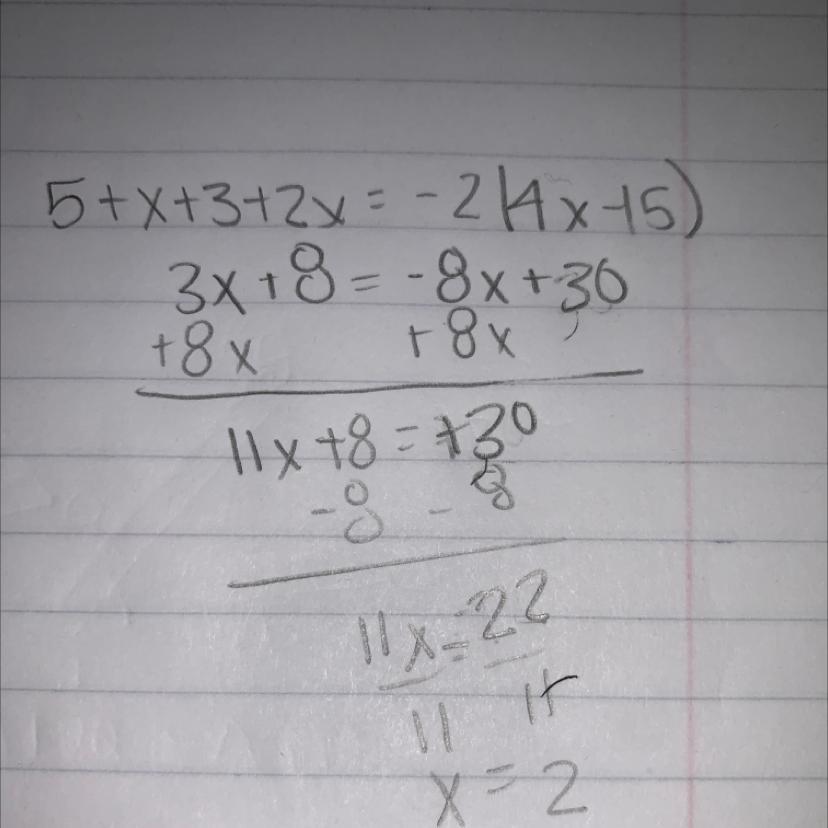 5+x+3+2x = -2(4x-15)
3x+8 = -8x+30
+8x +8x
11x+8 = +30
-8 -8
11x=22
11 11
x=2